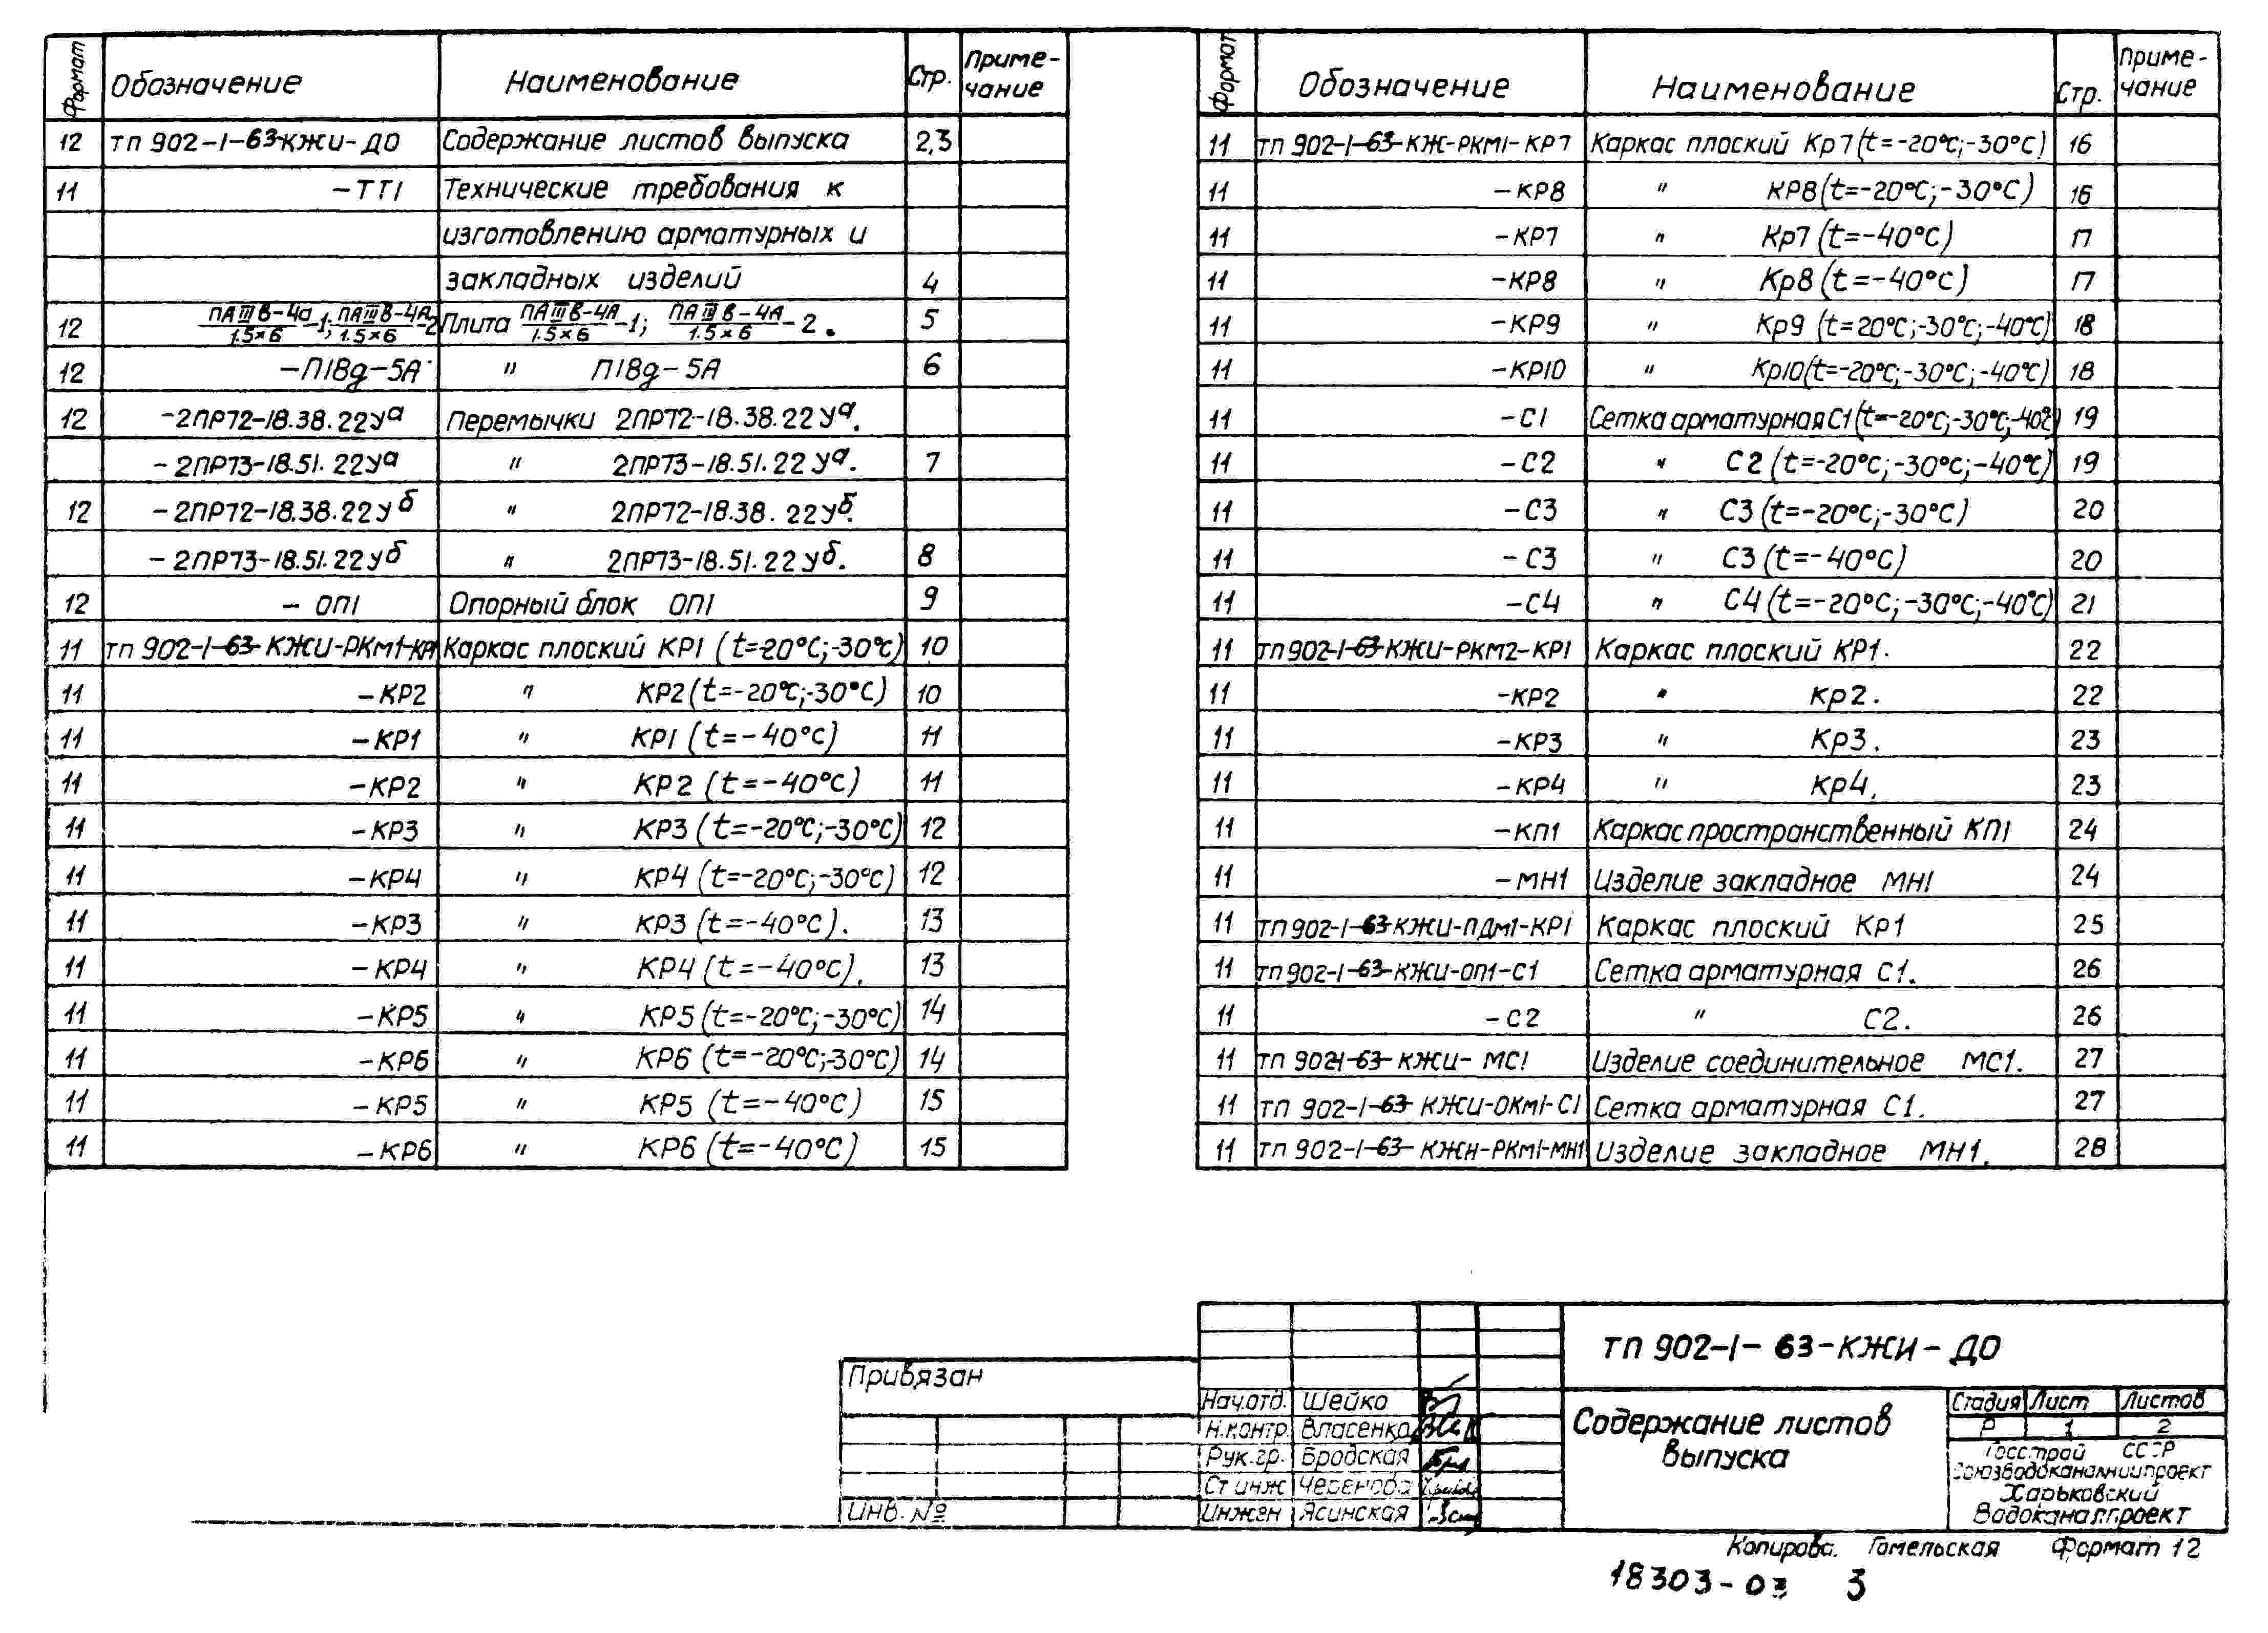 Формат Обозначение Наименование Стр. Приме-чание
12 тп 902-1-63-КЖИ-ДО Содержание листов выпуска 2,3
11 -ТТ1 Технические требования к
изготовлению арматурных и
закладных изделий 4
12 ПАIIIв-4а/1.5×6-1; ПАIIIв-4А/1.5×6-2 Плита ПАIIIв-4А/1.5×6-1; ПАIIIв-4А/1.5×6-2. 5
12 -П18д-5А " П18д-5А 6
12 -2ПР72-18.38.22Уа Перемычки 2ПР72-18.38.22Уа.
-2ПР73-18.51.22Уа " 2ПР73-18.51.22Уа. 7
12 -2ПР72-18.38.22Уб " 2ПР72-18.38.22Уб.
-2ПР73-18.51.22Уб " 2ПР73-18.51.22Уб. 8
12 - ОП1 Опорный блок ОП1 9
11 тп 902-1-63-КЖИ-РКм1-КР1 Каркас плоский КР1 (t=-20°С;-30°С) 10
11 -КР2 " КР2 (t=-20°С;-30°С) 10
11 -КР1 " КР1 (t=-40°С) 11
11 -КР2 " КР2 (t=-40°С) 11
11 -КР3 " КР3 (t=-20°С;-30°С) 12
11 -КР4 " КР4 (t=-20°С;-30°С) 12
11 -КР3 " КР3 (t=-40°С). 13
11 -КР4 " КР4 (t=-40°С). 13
11 -КР5 " КР5 (t=-20°С;-30°С) 14
11 -КР6 " КР6 (t=-20°С;-30°С) 14
11 -КР5 " КР5 (t=-40°С) 15
11 -КР6 " КР6 (t=-40°С) 15
Формат Обозначение Наименование Стр. Приме-чание
11 тп 902-1-63-КЖ-РКМ1-КР7 Каркас плоский Кр7 (t=-20°С;-30°С) 16
11 -КР8 " КР8 (t=-20°С;-30°С) 16
11 -КР7 " Кр7 (t=-40°С) 17
11 -КР8 " Кр8 (t=-40°С) 17
11 -КР9 " Кр9 (t=20°С;-30°С;-40°С) 18
11 -КР10 " Кр10 (t=-20°С;-30°С;-40°С) 18
11 -С1 Сетка арматурная С1 (t=-20°С;-30°С;-40°С) 19
11 -С2 " С2 (t=-20°С;-30°С;-40°С) 19
11 -С3 " С3 (t=-20°С;-30°С) 20
11 -С3 " С3 (t=-40°С) 20
11 -С4 " С4 (t=-20°С;-30°С;-40°С) 21
11 тп 902-1-63-КЖИ-РКМ2-КР1 Каркас плоский КР1. 22
11 -КР2 " Кр2. 22
11 -КР3 " Кр3. 23
11 -КР4 " Кр4. 23
11 -КП1 Каркас пространственный КП1 24
11 -МН1 Изделие закладное МН1 24
11 тп 902-1-63-КЖИ-ПДм1-КР1 Каркас плоский Кр1 25
11 тп 902-1-63-КЖИ-ОП1-С1 Сетка арматурная С1. 26
11 -С2 " С2. 26
11 тп 902-1-63-КЖИ-МС1 Изделие соединительное МС1. 27
11 тп 902-1-63-КЖИ-ОКм1-С1 Сетка арматурная С1. 27
11 тп 902-1-63-КЖИ-РКм1-МН1 Изделие закладное МН1. 28
Привязан
Инв. №
Нач.отд. Шейко
Н.контр. Власенко
Рук.гр. Бродская
Ст инж
Инжен Ясинская
тп 902-1-63-КЖИ-ДО
Содержание листов
выпуска
Стадия Лист Листов
Р 1 2
Госстрой СССР
Союзводоканалниипроект
Харьковский
Водоканалпроект
Копирова. Гомельская Формат 12
18303-03 3